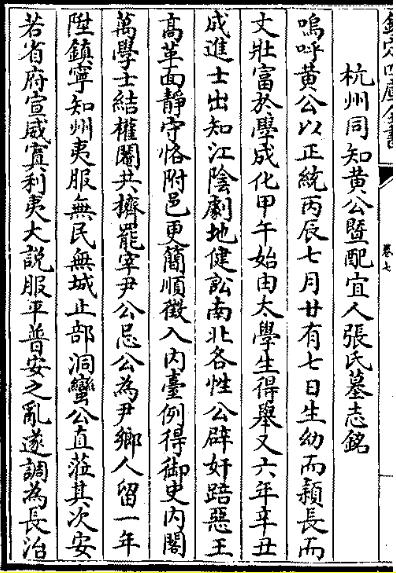 欽定四庫全書
卷七
杭州同知黄公暨配宜人張氏墓志銘
嗚呼黄公以正統丙辰七月廿有七日生幼而穎長而
文壯富於學成化甲午始由太學生得舉又六年辛丑
成進士出知江陰劇地健訟南北各性公辟奸踣惡王
高革面靜守恪附邑更簡順徵入内臺例得御史内閣
萬學士結權閹共擠罷宰尹公忌公為尹鄉人留一年
陞鎮寧知州夷服無民無城止部洞蠻公直蒞其次安
若省府宣威實利夷大説服平普安之亂遂調為長治